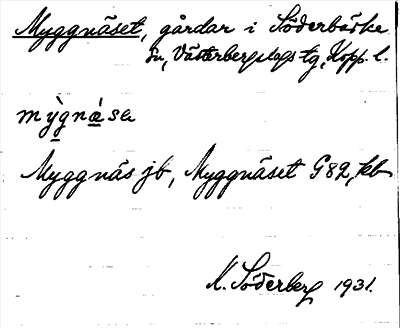 Myggnäset, gårdar i Söderbärke
sn, Västerbergslags tg, Kopp. l.
mỳgnä́sa
Myggnäs jb, Myggnäset G82, kb
K. Söderberg 1931.